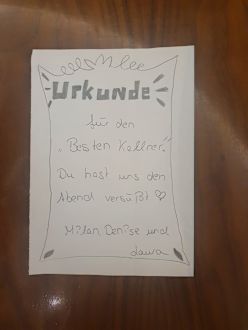 Urkunde
für den
„Besten Kellner."
Du hast uns den
Abend versüßt ♡
Milan, Denise und
Laura